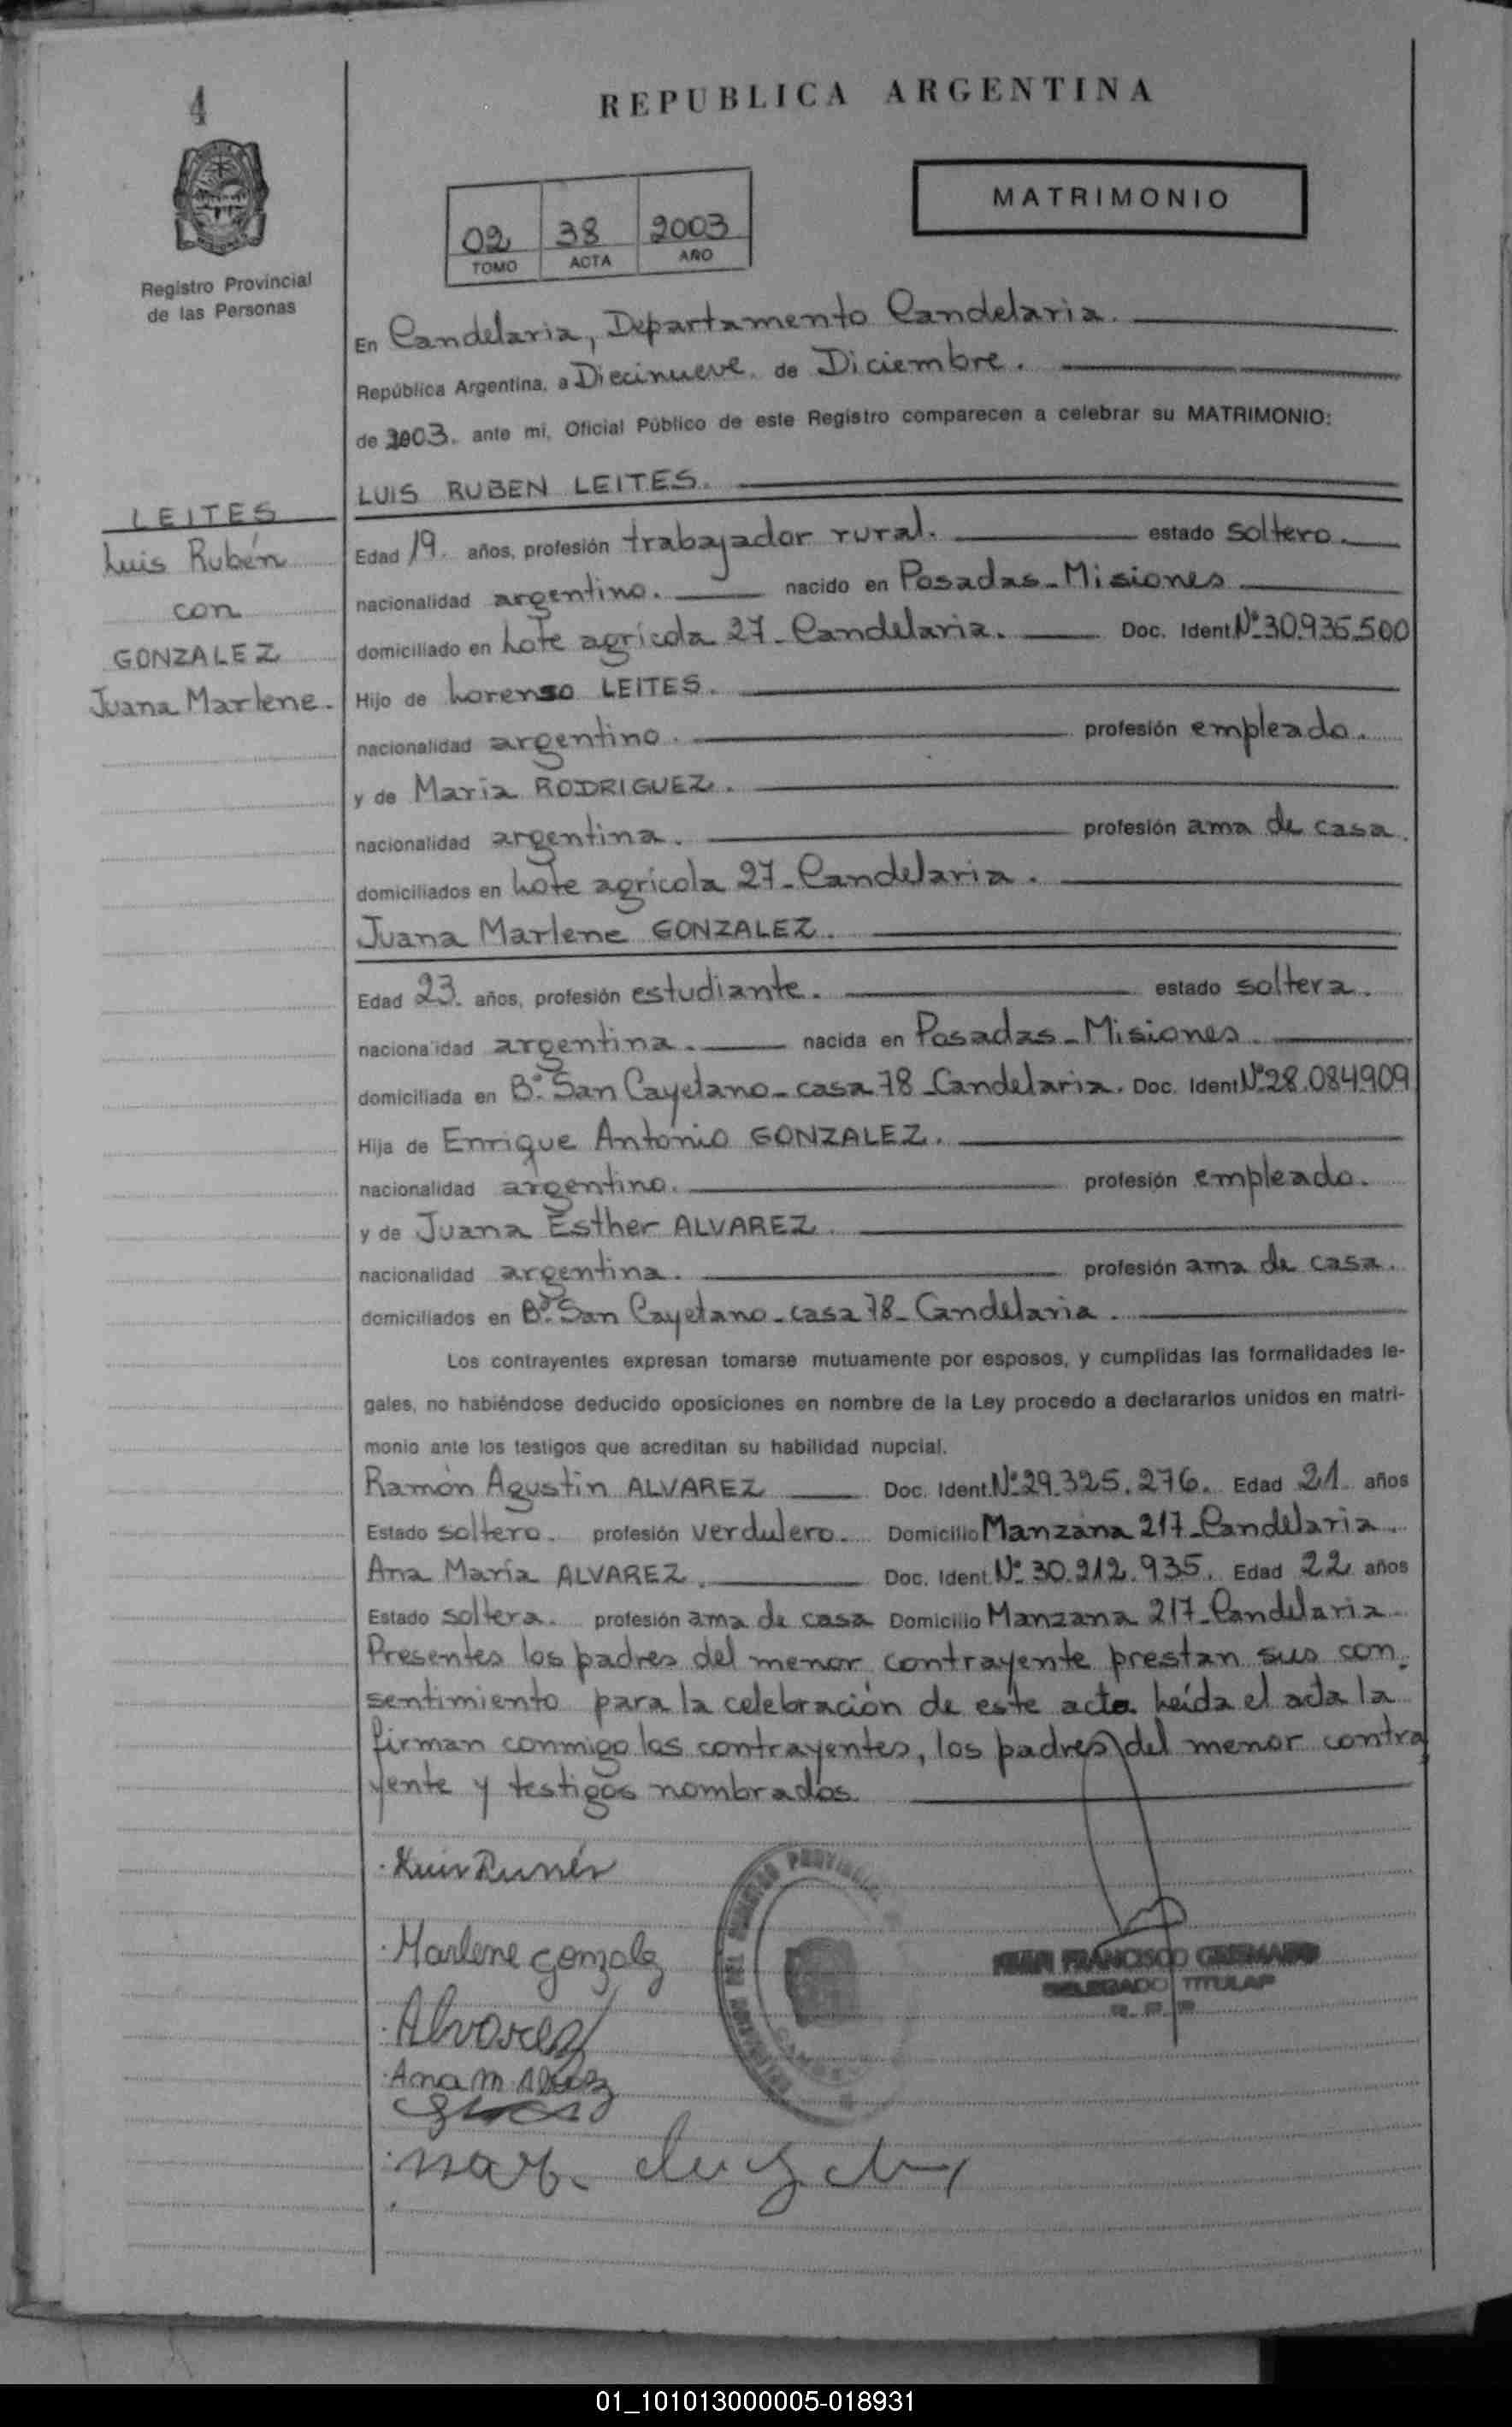 4
REPUBLICA ARGENTINA
MATRIMONIO
02 38 2003
TOMO ACTA AÑO
Registro Provincial
de las Personas
En Candelaria, Departamento Candelaria.
República Argentina, a Diecinueve. de Diciembre.
de 2003. ante mi, Oficial Público de este Registro comparecen a celebrar su MATRIMONIO:
LUIS RUBEN LEITES.
LEITES
Luis Rubén
con
GONZALEZ
Juana Marlene.
Edad 19. años, profesión trabajador rural. estado soltero.
nacionalidad argentino. nacido en Posadas-Misiones
domiciliado en Lote agrícola 27-Candelaria. Doc. Ident. Nº 30.936.500
Hijo de Lorenso LEITES.
nacionalidad argentino. profesión empleado.
y de María RODRIGUEZ.
nacionalidad argentina. profesión ama de casa.
domiciliados en Lote agrícola 27-Candelaria.
Juana Marlene GONZALEZ.
Edad 23. años, profesión estudiante. estado soltera.
nacionalidad argentina. nacida en Posadas-Misiones.
domiciliada en Bº. San Cayetano-casa 78-Candelaria. Doc. Ident Nº 28.084.909
Hija de Enrique Antonio GONZALEZ.
nacionalidad argentino. profesión empleado.
y de Juana Esther ALVAREZ.
nacionalidad argentina. profesión ama de casa.
domiciliados en Bº. San Cayetano-casa 78-Candelaria.
Los contrayentes expresan tomarse mutuamente por esposos, y cumplidas las formalidades le-
gales, no habiéndose deducido oposiciones en nombre de la Ley procedo a declararlos unidos en matri-
monio ante los testigos que acreditan su habilidad nupcial.
Ramón Agustin ALVAREZ Doc. Ident. Nº 29.325.276. Edad 21. años
Estado soltero. profesión verdulero. Domicilio Manzana 217-Candelaria.
Ana María ALVAREZ. Doc. Ident. Nº 30.212.935. Edad 22 años
Estado soltera. profesión ama de casa Domicilio Manzana 217-Candelaria
Presentes los padres del menor contrayente prestan sus con-
sentimiento para la celebración de este acto. Leída el acta la
firman conmigo los contrayentes, los padres del menor contra
yente y testigos nombrados.
Marlene Gonzalez
Alvarez
Ana M.
FRANCISCO
DELEGADO TITULAR
01_101013000005-018931